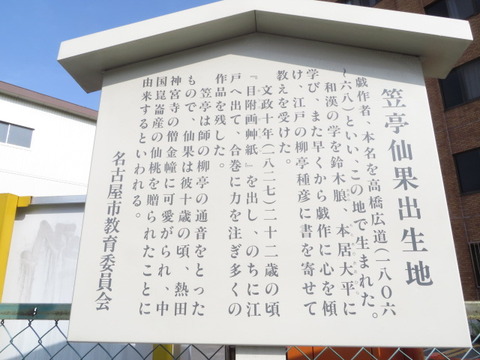 笠亭仙果出生地
戯作者、本名を高橋広道(一八〇六
〜六八)といい、この地で生まれた。
和漢の学を鈴木朖、本居大平に
学び、また早くから戯作に心を傾
け、江戸の柳亭種彦に書を寄せて
教えを受けた。
文政十年(一八二七)二十二歳の頃
『目附画艸紙』を出し、のちに江
戸へ出て、合巻に力を注ぎ多くの
作品を残した。
笠亭は師の柳亭の通音をとった
もので、仙果は彼十歳の頃、熱田
神宮寺の僧金幢に可愛がられ、中
国崑崙産の仙桃を贈られたことに
由来するといわれる。
名古屋市教育委員会